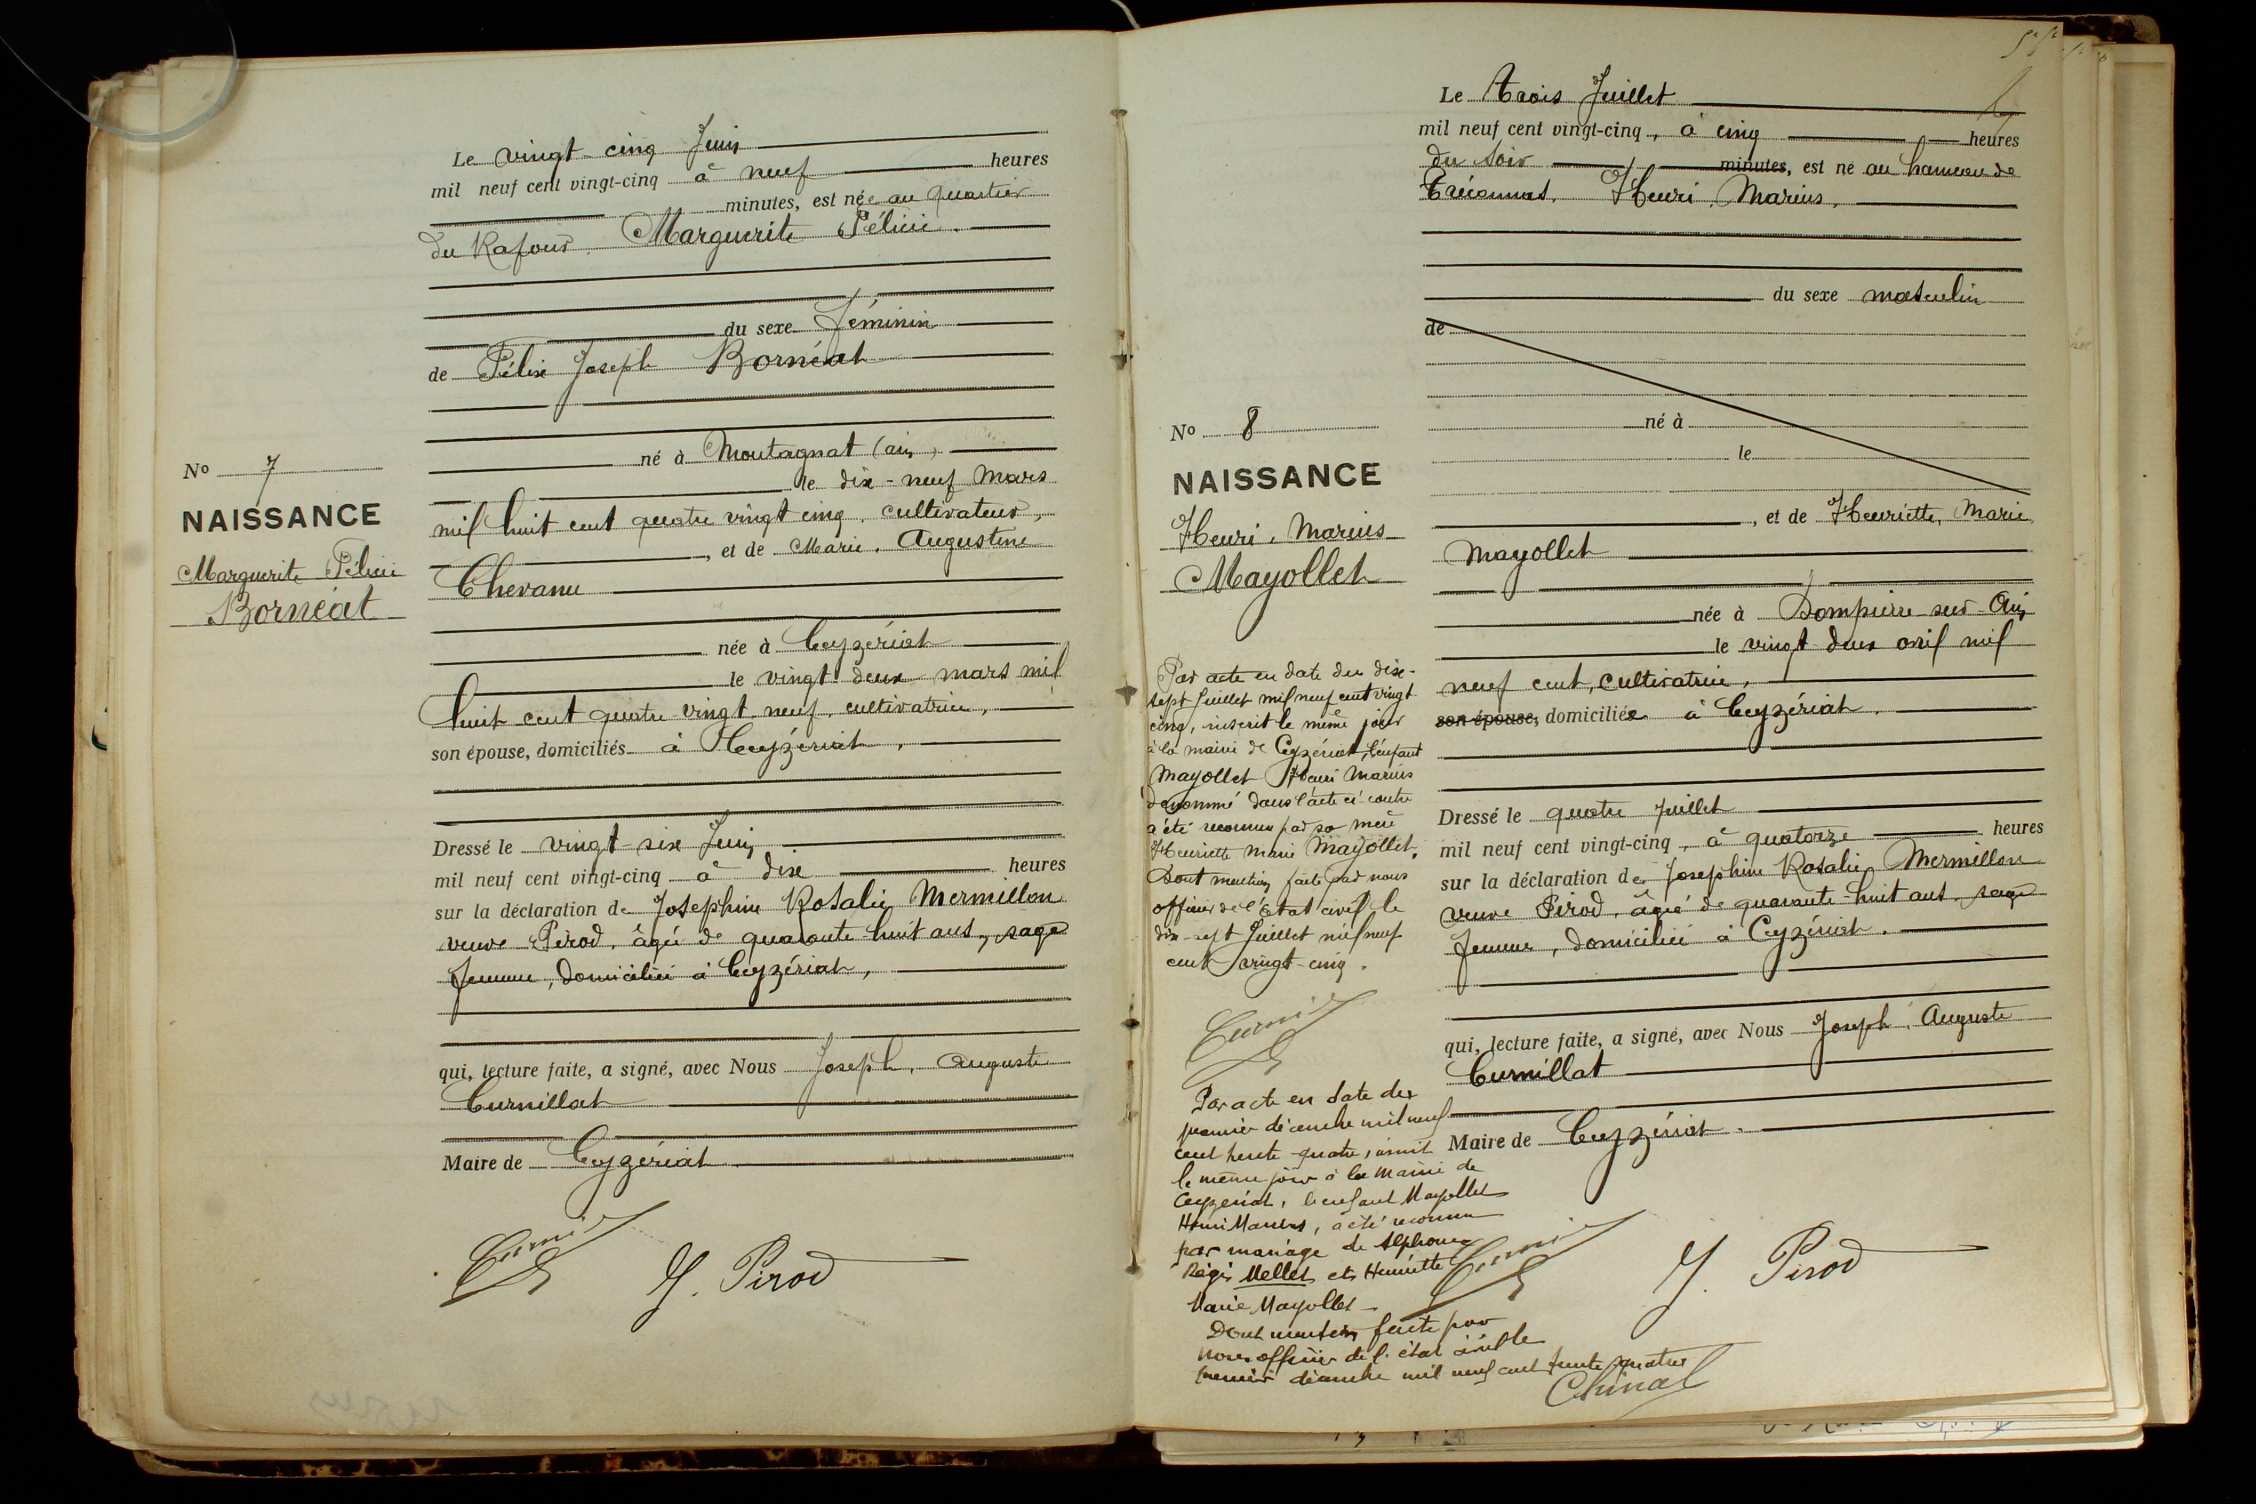 Le vingt cinq Juin
mil neuf cent vingt-cinq à neuf heures
minutes, est née au quartier
du Kafour. Marguerite Félicie.
du sexe féminin
de Félix Joseph Bornéat
né à Montagnat (ain)
le dix-neuf Mars
mil huit cent quatre vingt cinq, cultivateur,
, et de Marie, Augustine
Chevanu
née à Ceyzériat
le vingt deux mars mil
huit cent quatre vingt neuf, cultivatrice,
son épouse, domiciliés à Ceyzériat,
No 7
NAISSANCE
Marguerite Félicie
Bornéat
Dressé le vingt-six Juin
mil neuf cent vingt-cinq à dix heures
sur la déclaration de Joséphine Rosalie Mermillon
veuve Pirod, âgée de quarante-huit ans, sage
femme, domiciliée à Ceyzériat,
qui, lecture faite, a signé, avec Nous Joseph, Auguste
Curnillat
Maire de Ceyzériat
J. Pirod
Le trois Juillet
mil neuf cent vingt-cinq, à cinq heures
du soir minutes, est né au hameau de
Tréconnas, Henri, Marius,
du sexe masculin
de
né à
le
, et de Henriette, Marie
Mayollet
née à Dompierre sur Ain
le vingt deux avril mil
neuf cent, cultivatrice,
son épouse, domiciliée à Ceyzériat.
No 8
NAISSANCE
Henri, Marius
Mayollet
Dressé le quatre Juillet
mil neuf cent vingt-cinq, à quatorze heures
sur la déclaration de Joséphine Rosalie Mermillon
veuve Pirod, âgée de quarante-huit ans, sage
femme, domiciliée à Ceyzériat.
qui, lecture faite, a signé, avec Nous Joseph, Auguste
Curnillat
Maire de Ceyzériat.
Par acte en date du dix-
sept Juillet mil neuf cent vingt
cinq, inscrit le même jour
à la mairie de Ceyzériat, l'enfant
Mayollet Henri Marius
dénommé dans l'acte ci-contre
a été reconnu par sa mère
Henriette Marie Mayollet,
Dont mention faite par nous
officier de l'état civil le
dix-sept Juillet mil neuf
cent vingt-cinq.
Par acte en date du
premier décembre mil neuf
cent trente-quatre, inscrit
le même jour à la mairie de
Ceyzériat, l'enfant Mayollet
Henri Marius, a été reconnu
par mariage de Alphonse
Régis Mellet et Henriette
Marie Mayollet
Dont mention faite par
nous officier de l'état civil le
premier décembre mil neuf cent trente quatre
J. Pirod
Chinal